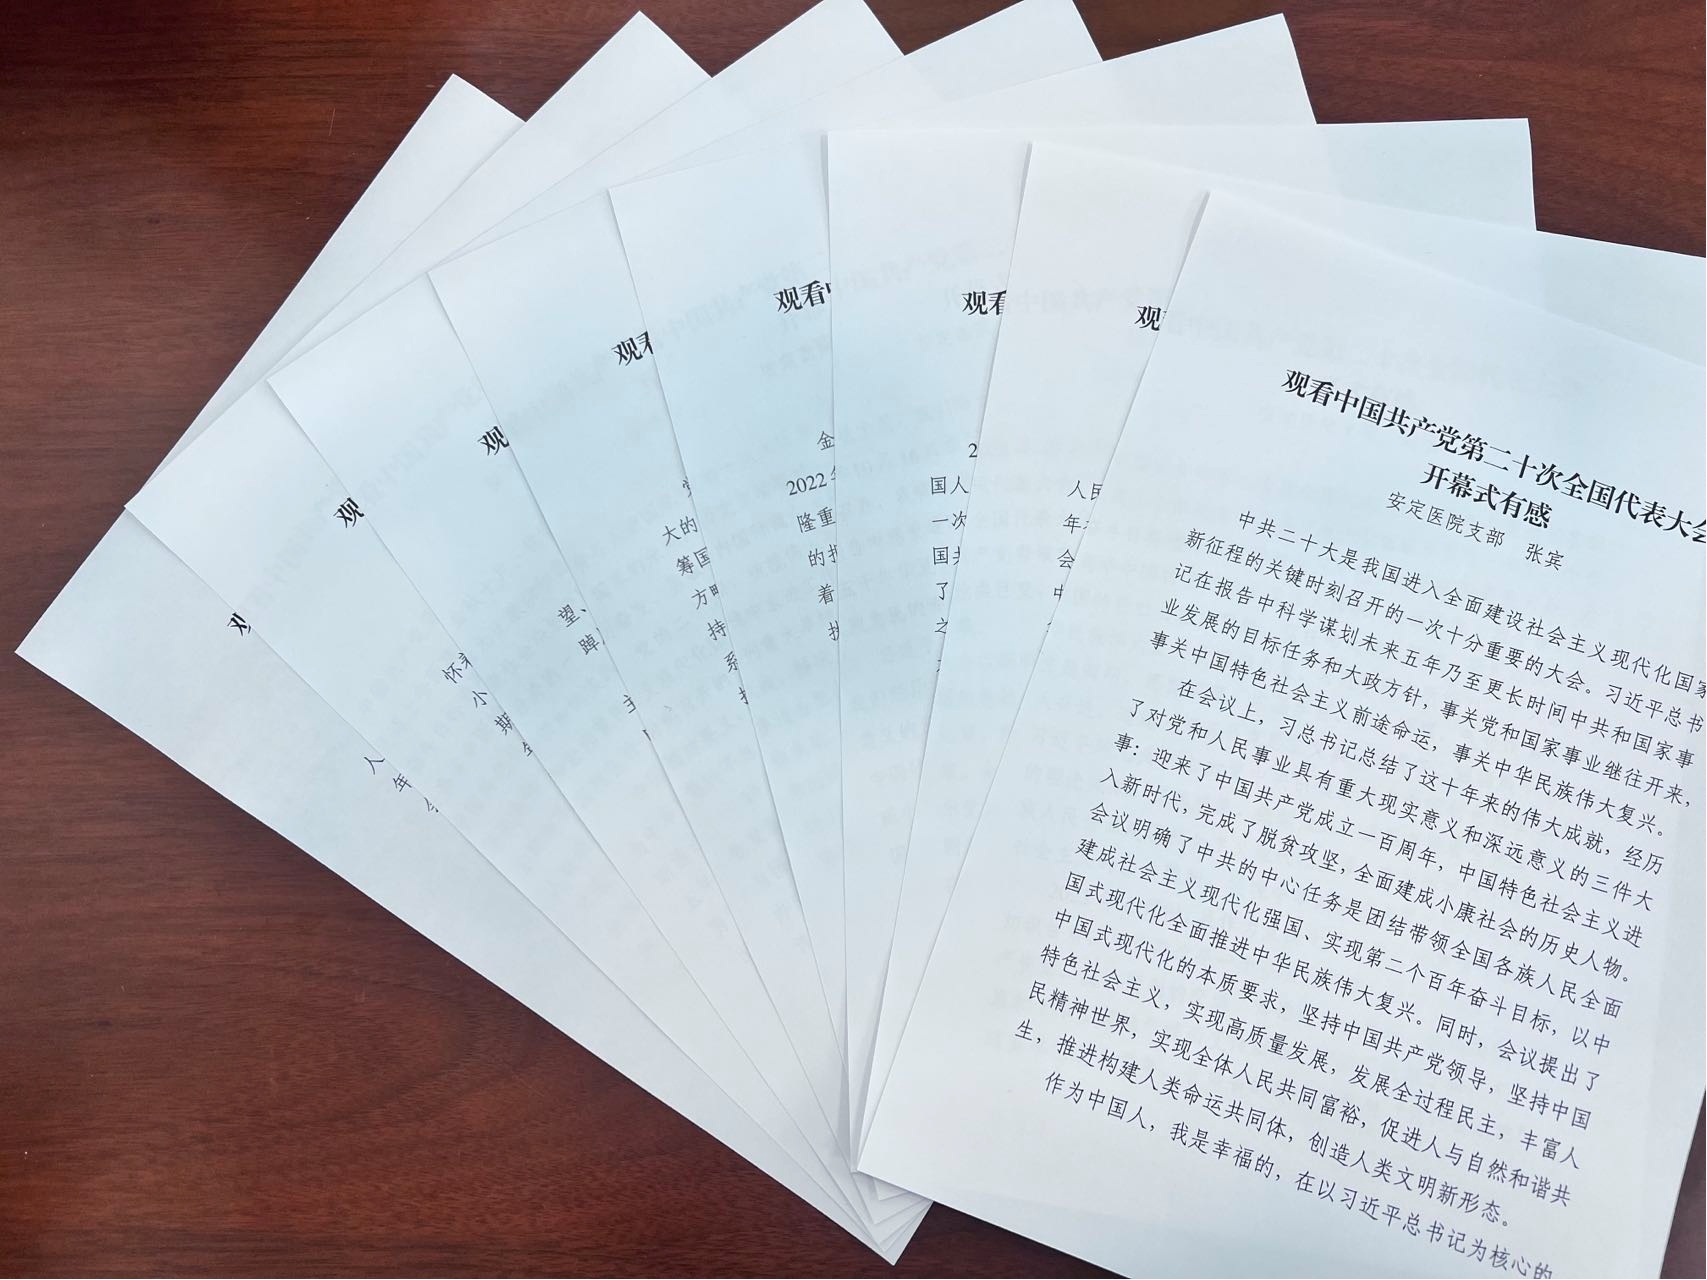 观
人
年
观
怀
小
期
观
望、
踔
观看
大的
筹国
方略
持
系
观看中
金
2022年
隆重
的报
着
观看
2
国人
一次
国共
了
之
观
人民
年
会
中
观看中国共产党第二十次全国代表大会
开幕式有感
安定医院支部 张宾
中共二十大是我国进入全面建设社会主义现代化国家
新征程的关键时刻召开的一次十分重要的大会。习近平总书
记在报告中科学谋划未来五年乃至更长时间中共和国家事
业发展的目标任务和大政方针，事关党和国家事业继往开来，
事关中国特色社会主义前途命运，事关中华民族伟大复兴。
在会议上，习总书记总结了这十年来的伟大成就，经历
了对党和人民事业具有重大现实意义和深远意义的三件大
事：迎来了中国共产党成立一百周年，中国特色社会主义进
入新时代，完成了脱贫攻坚，全面建成小康社会的历史人物。
会议明确了中共的中心任务是团结带领全国各族人民全面
建成社会主义现代化强国、实现第二个百年奋斗目标，以中
国式现代化全面推进中华民族伟大复兴。同时，会议提出了
中国式现代化的本质要求，坚持中国共产党领导，坚持中国
特色社会主义，实现高质量发展，发展全过程民主，丰富人
民精神世界，实现全体人民共同富裕，促进人与自然和谐共
生，推进构建人类命运共同体，创造人类文明新形态。
作为中国人，我是幸福的，在以习近平总书记为核心的